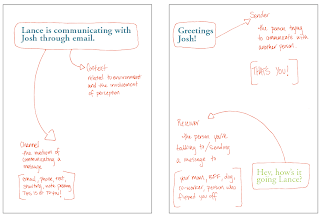 Lance is communicating with
Josh through email.
Context
related to environment
and the environment
of perception
Channel
the medium of
communicating a
message
Greetings
Josh!
Sender
the person trying
to communicate with
another person.
THAT'S YOU!
Receiver
the person you're
talking to/sending
a message to
your mom, BFF, dog,
co-worker, person who
flipped you off
Hey, how's it
going Lance?